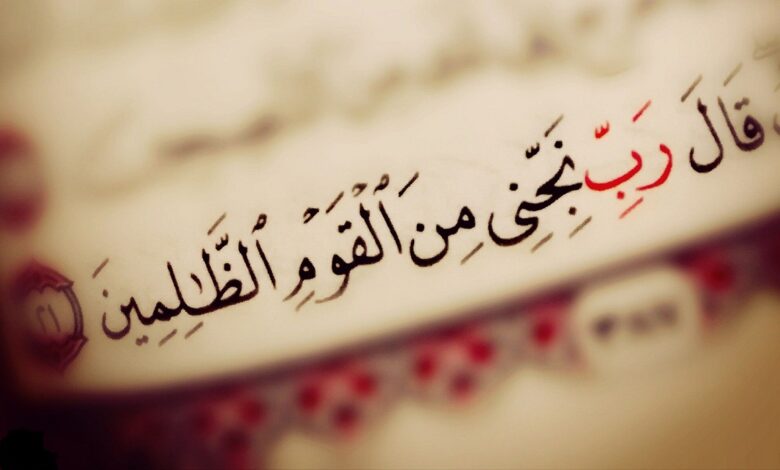 قَالَ رَبِّ نَجِّنِى مِنَ ٱلْقَوْمِ ٱلظَّٰلِمِينَ ٢١